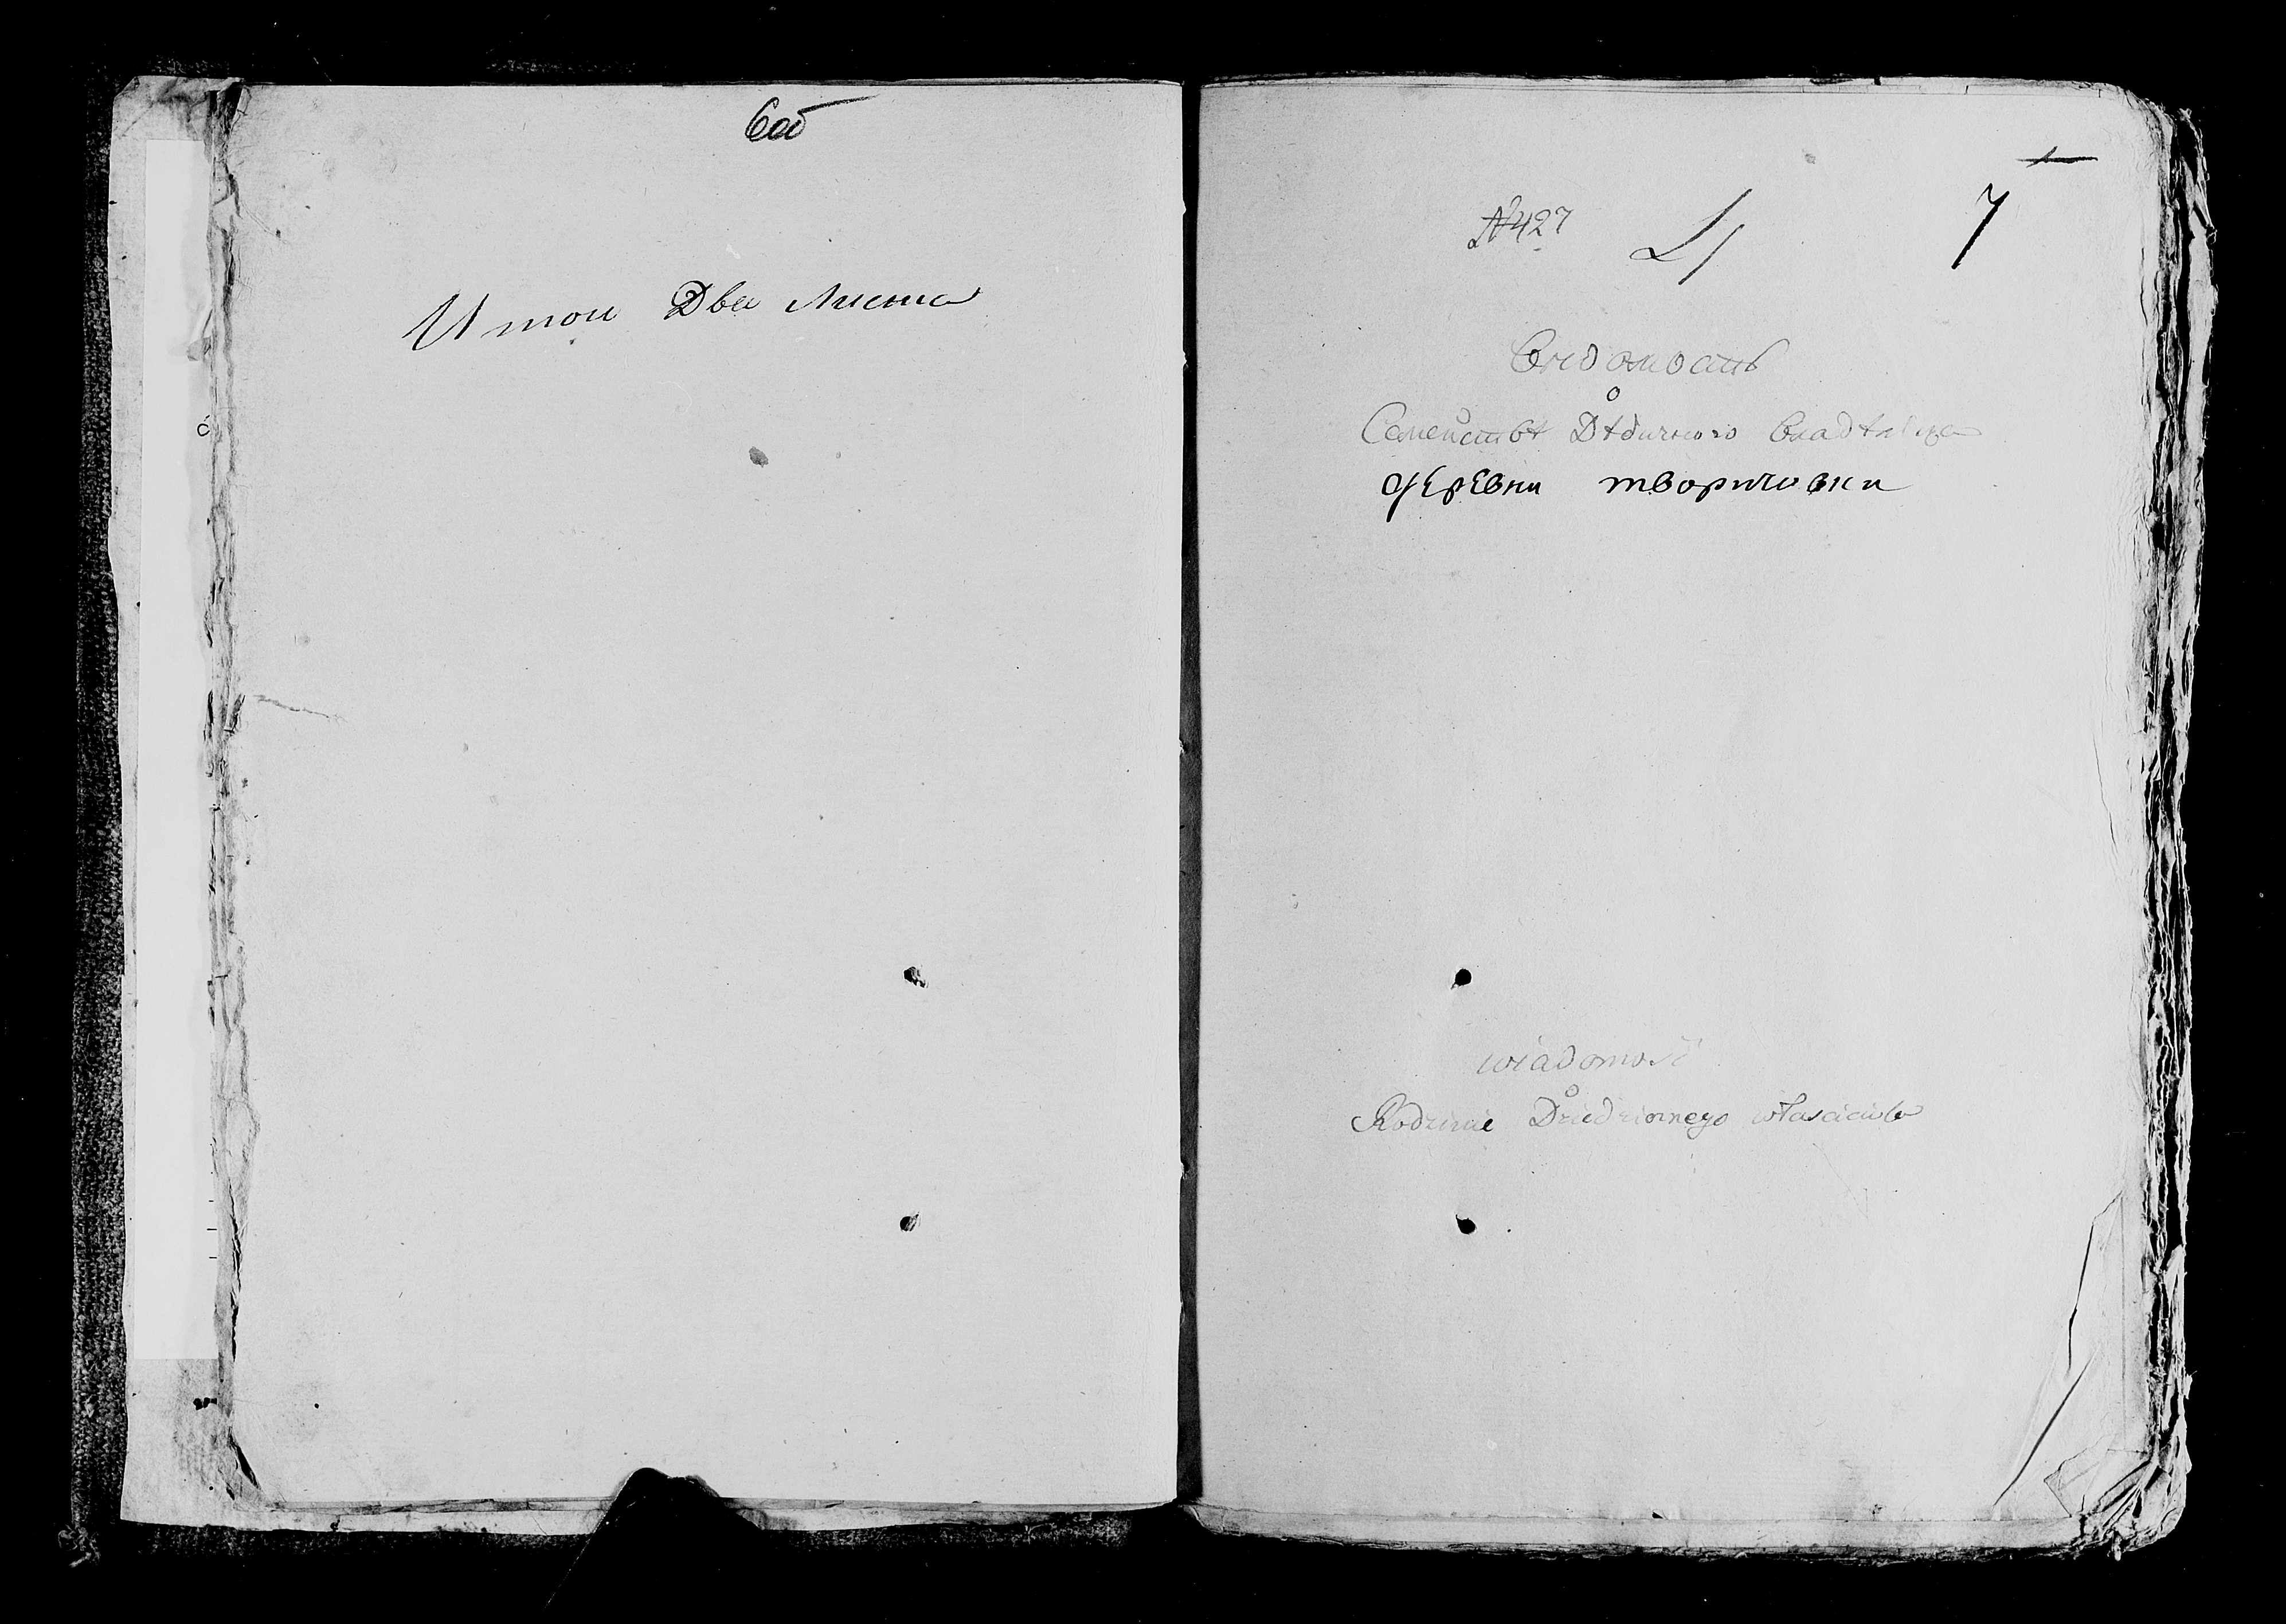 6об
И того Два Листа
7
№427
4
Ведомость
о
Семействѣ Дѣдичного владѣльца
деревни творичовки
wiadomość
o
Rodzinie Dziedzicznego własciciela